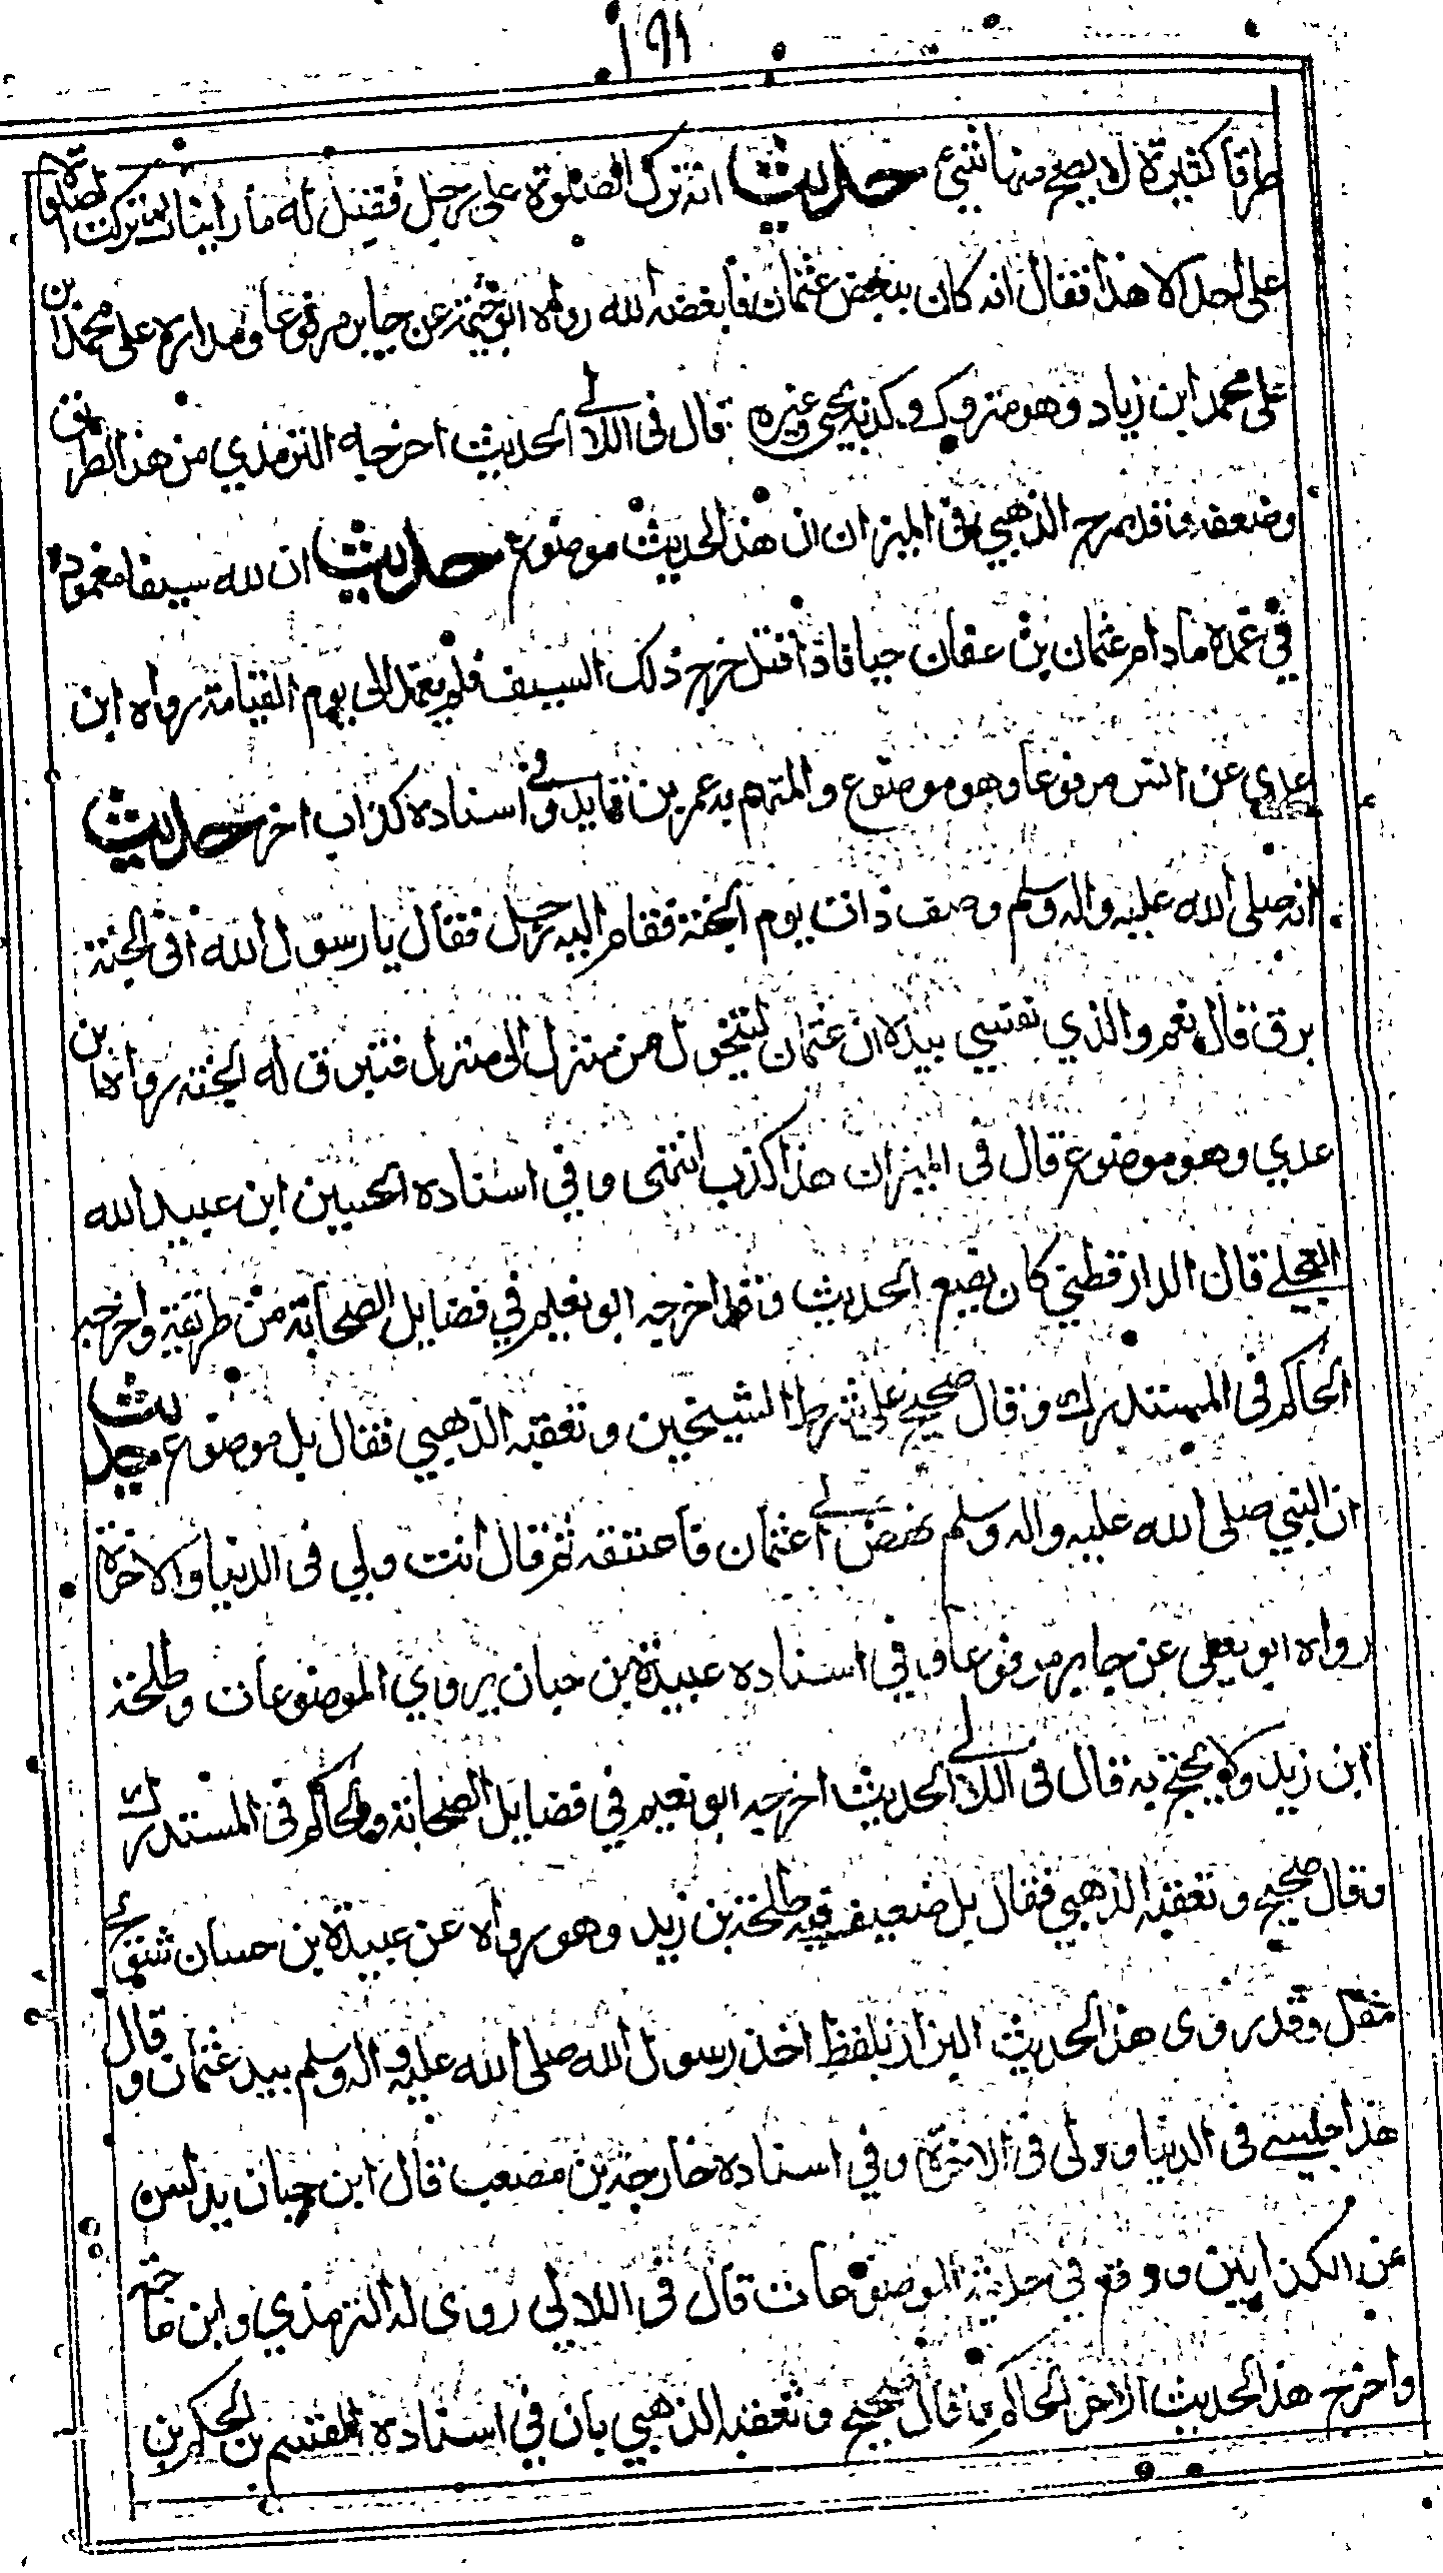 ١٩١
طرقا كثيرة لا يصح منها شيء حديث انه ترك الصلوة على رجل فقيل له ما رايناك تركت الصلوة
على احد الا هذا فقال انه كان يبغض عثمان فابغضه الله رواه ابو خيثمة عن جابر مرفوعا ومداره على محمد ابن
على محمد ابن زياد وهو متروك وكذبه يحيى وغيره قال في اللآلي الحديث اخرجه الترمذي من هذا الطريق
وضعفه وقد صرح الذهبي في الميزان ان هذا الحديث موضوع حديث ان لله سيفا مغمودا
في غمده ما دام عثمان بن عفان حيا فاذا قتل خرج ذلك السيف فلم يغمد الى يوم القيامة رواه ابن
عدي عن انس مرفوعا وهو موضوع والمتهم به عمر بن فايد وفي اسناده كذاب اخر حديث
انه صلى الله عليه واله وسلم وصف ذات يوم الجنة فقام اليه رجل فقال يا رسول الله افي الجنة
برق قال نعم والذي نفسي بيده ان عثمان ليتحول من منزل الى منزل فتبرق له الجنة رواه ابن
عدي وهو موضوع قال في الميزان هذا كذب انتهى وفي اسناده الحسين ابن عبيد الله
العجلي قال الدارقطني كان يضع الحديث وقد اخرجه ابو نعيم في فضايل الصحابة من طريقه واخرجه
الحاكم في المستدرك وقال صحيح على شرط الشيخين وتعقبه الذهبي فقال بل موضوع حديث
ان النبي صلى الله عليه واله وسلم نهض الى عثمان فاعتنقه ثم قال انت وليي في الدنيا والاخرة
رواه ابو يعلى عن جابر مرفوعا وفي اسناده عبيدة بن حبان يروي الموضوعات وطلحة
ابن زيد ولا يحتج به قال في اللآلي الحديث اخرجه ابو نعيم في فضايل الصحابة والحاكم في المستدرك
وقال صحيح وتعقبه الذهبي فقال بل ضعيف فيه طلحة بن زيد وهو رواه عن عبيدة بن حسان شويخ
مقل وقد روى هذا الحديث البزار بلفظ اخذ رسول الله صلى الله عليه واله وسلم بيد عثمان وقال
هذا جليسي في الدنيا وولي في الاخرة وفي اسناده خارجة بن مصعب قال ابن حبان يدلس
عن الكذابين ووقع في حديثه الموضوعات قال في اللالي روى له الترمذي وابن ماجه
واخرج هذا الحديث الاخر الحاكم وقال صحيح وتعقبه الذهبي بان في اسناده القسم بن الحكم بن